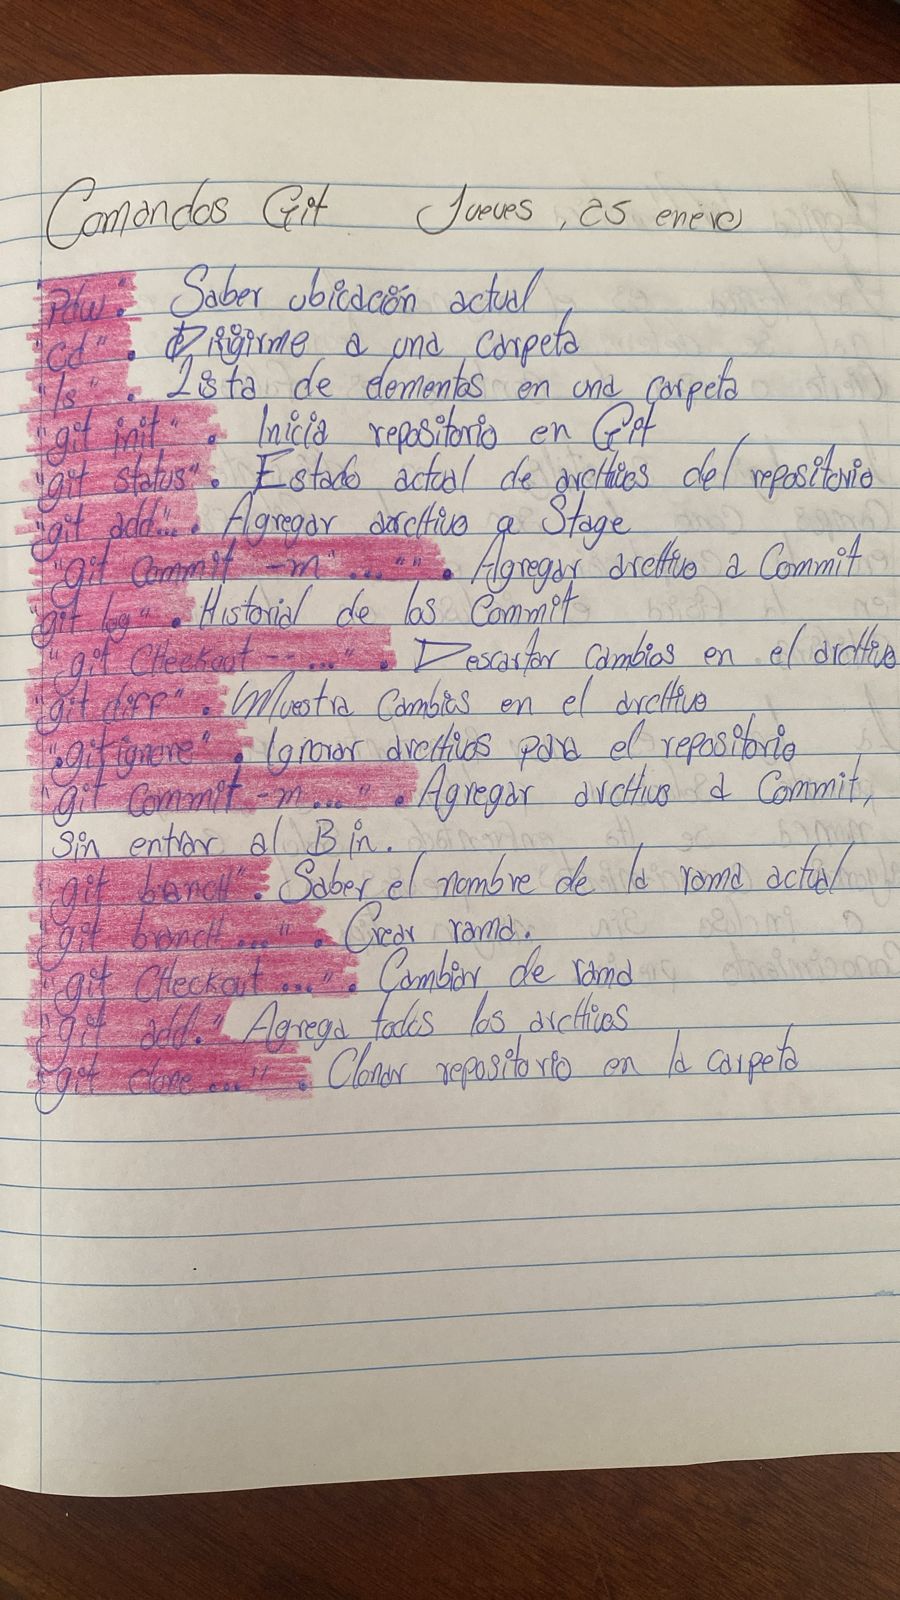 Comandos Git Jueves, 25 enero
Pdw". Saber ubicación actual
"Cd". Dirigirme a una carpeta
"ls". Lista de elementos en una carpeta
"git init". Inicia repositorio en Git
"git status". Estado actual de archivos del repositorio
"git add...". Agregar archivo a Stage
"git Commit -m "..."". Agregar archivo a Commit
"git log". Historial de los Commit
"git CHeckout -- ...". Descartar cambios en el archivo
"git diff". Muestra Cambios en el archivo
".gitignore". Ignorar archivos para el repositorio
"git Commit -m...". Agregar archivo a Commit,
Sin entrar al Bin.
"git brancH". Saber el nombre de la rama actual
"git brancH...". Crear rama.
"git CHeckout ...". Cambiar de rama
"git add." Agrega todos los archivos
"git clone...". Clonar repositorio en la carpeta